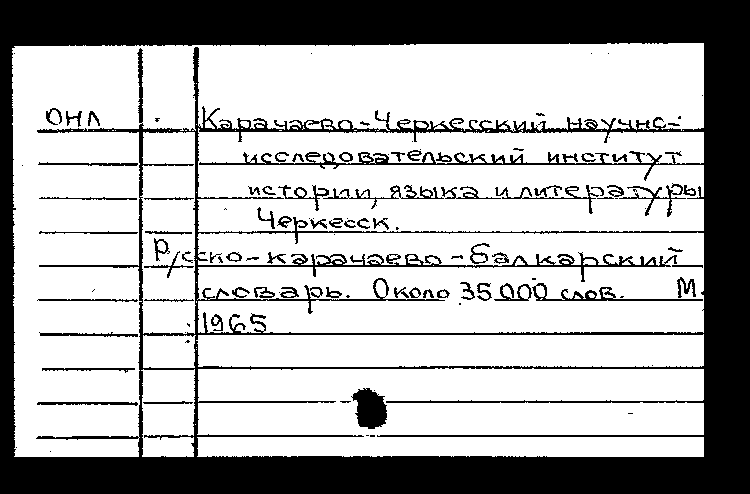 ОНЛ Карачаево-Черкесский научно-
исследовательский институт
истории, языка и литературы
Черкесск.
Русско-карачаево-балкарский
словарь. Около 35000 слов. М.
1965